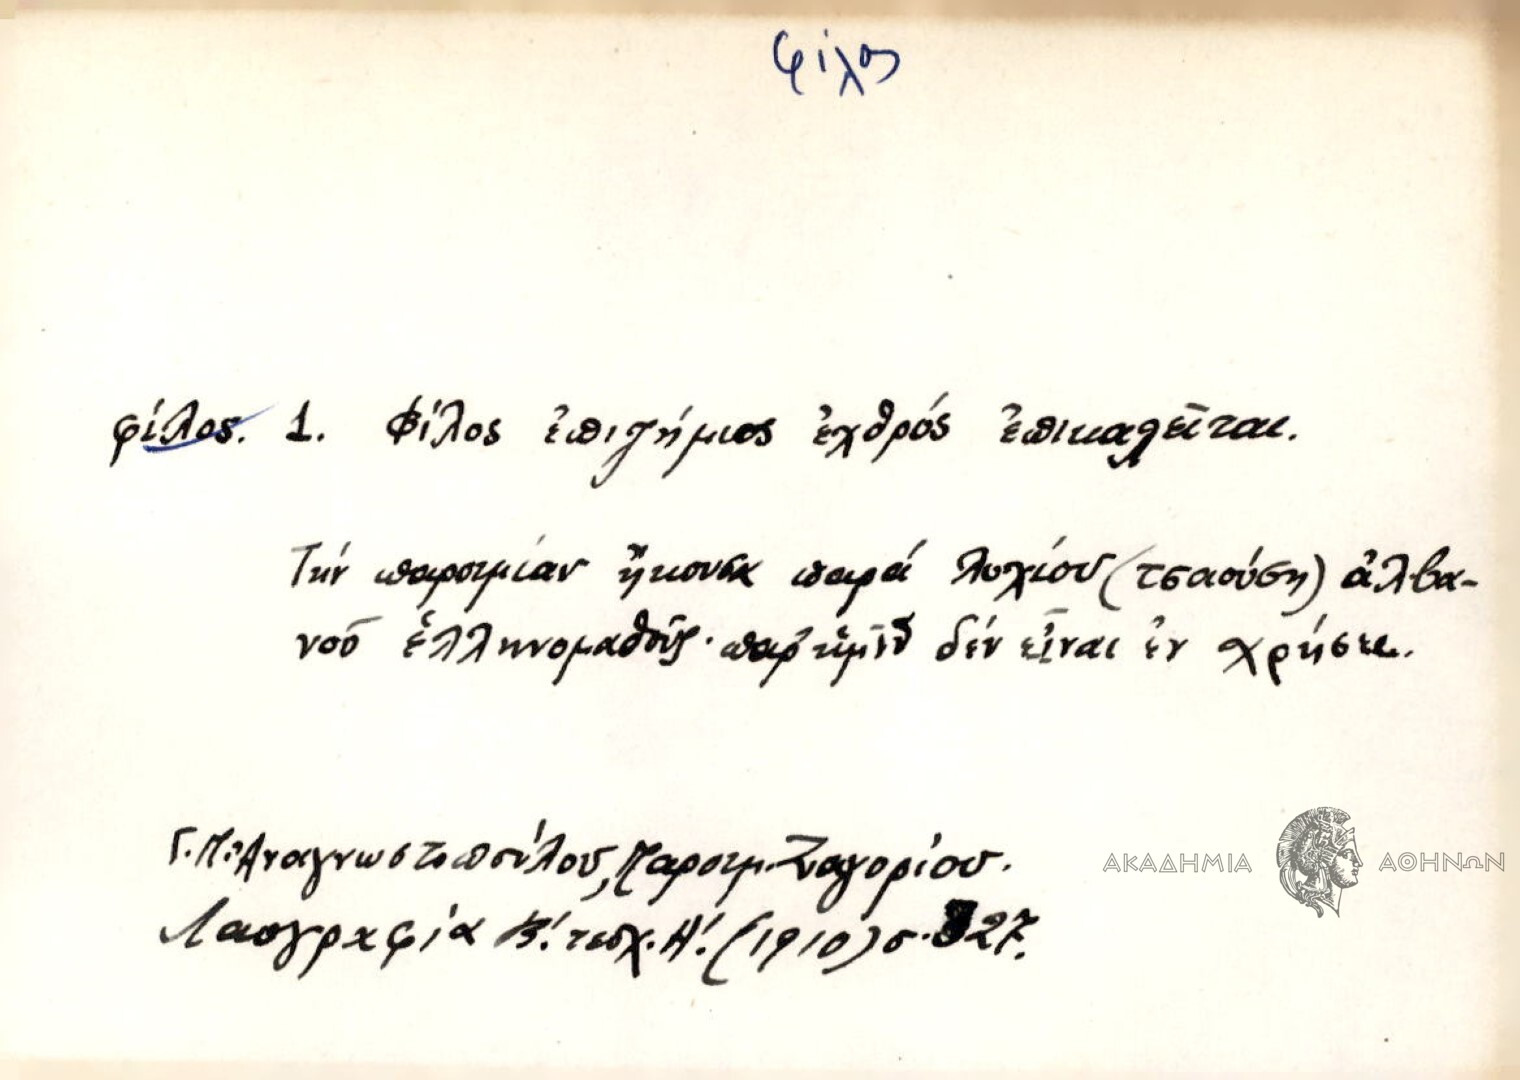 φίλος
φίλος. 1. Φίλος ἐπιζήμιος ἐχθρός ἐπικαλεῖται.
Τήν παροιμίαν ἤκουσα παρά λοχίου (τσαούση) ἀλβα-
νοῦ ἑλληνομαθοῦς· παρ' ἡμῖν δέν εἶναι ἐν χρήσει.
Γ. Π. Ἀναγνωστοπούλου, Παροιμ. Ζαγορίου.
Λαογραφία Β΄. τεῦχ. Α΄. (1910) σ. 327.
ΑΚΑΔΗΜΙΑ ΑΘΗΝΩΝ